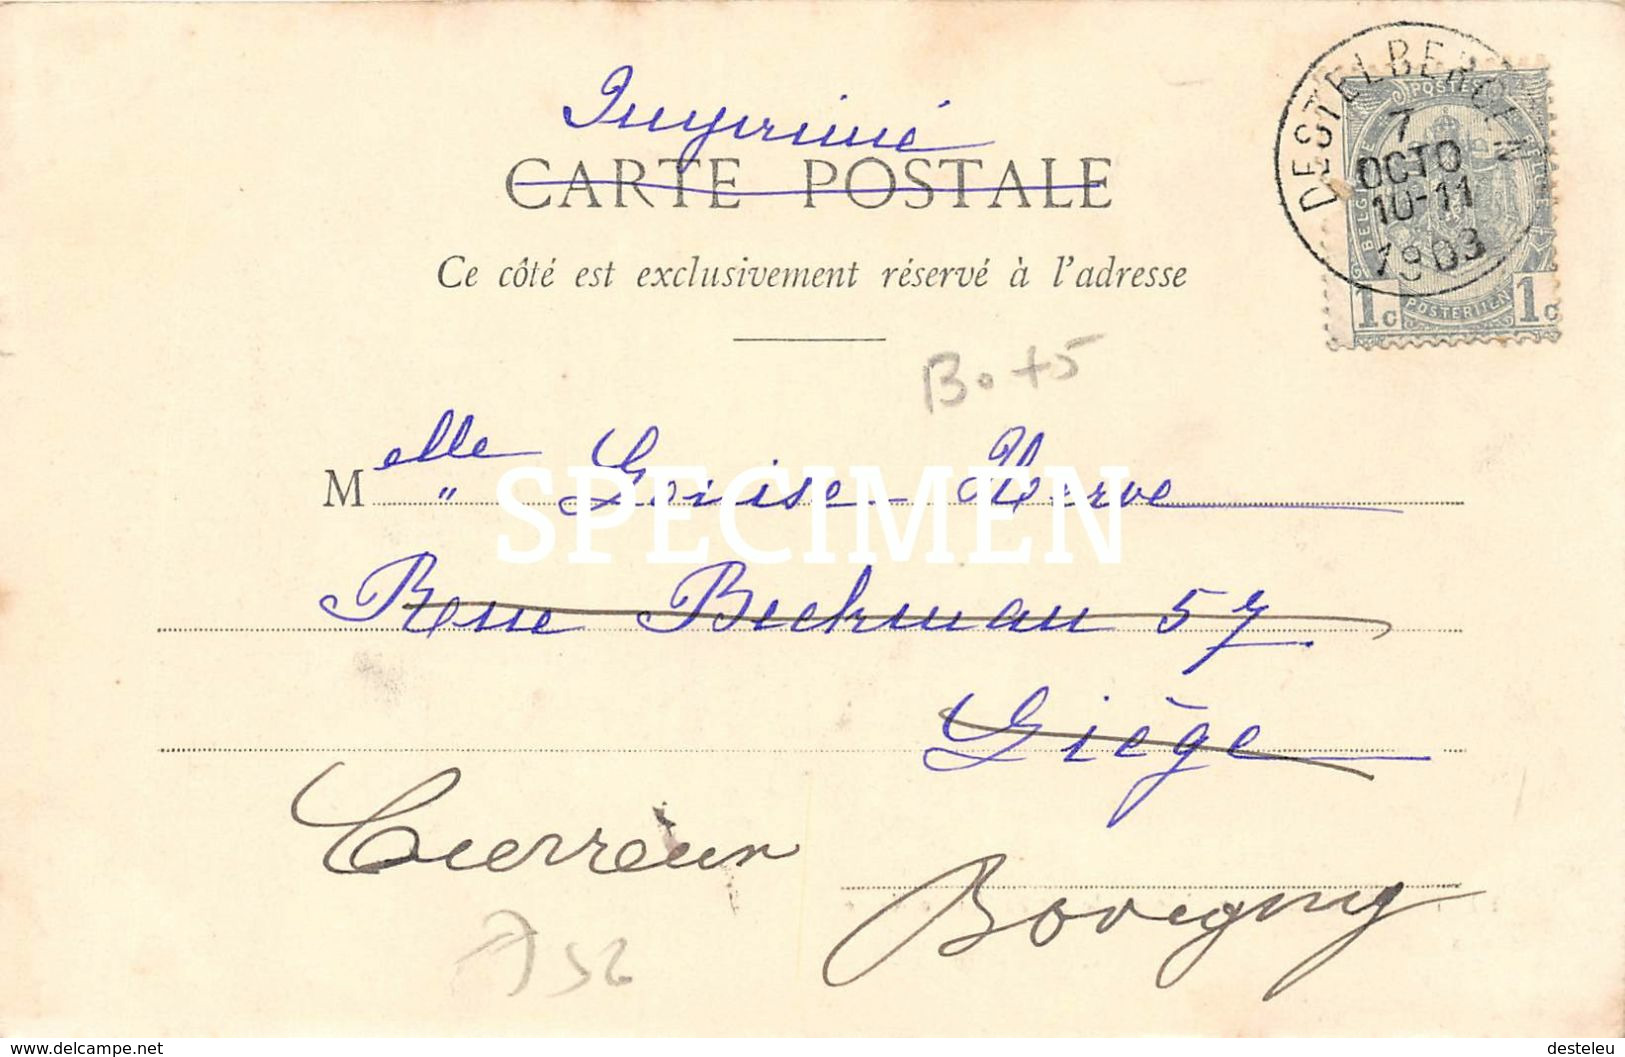 Imprimé
CARTE POSTALE
Ce côté est exclusivement réservé à l'adresse
DESTELBERGEN
7
OCTO
10-11
1903
POSTES
BELGIQUE
POSTERIJEN
1c 1c
Bo+5
Melle Louise Herve
SPECIMEN
Rue Beckman 57
Liège
Cierreux
Bovigny
delcampe.net
desteleu